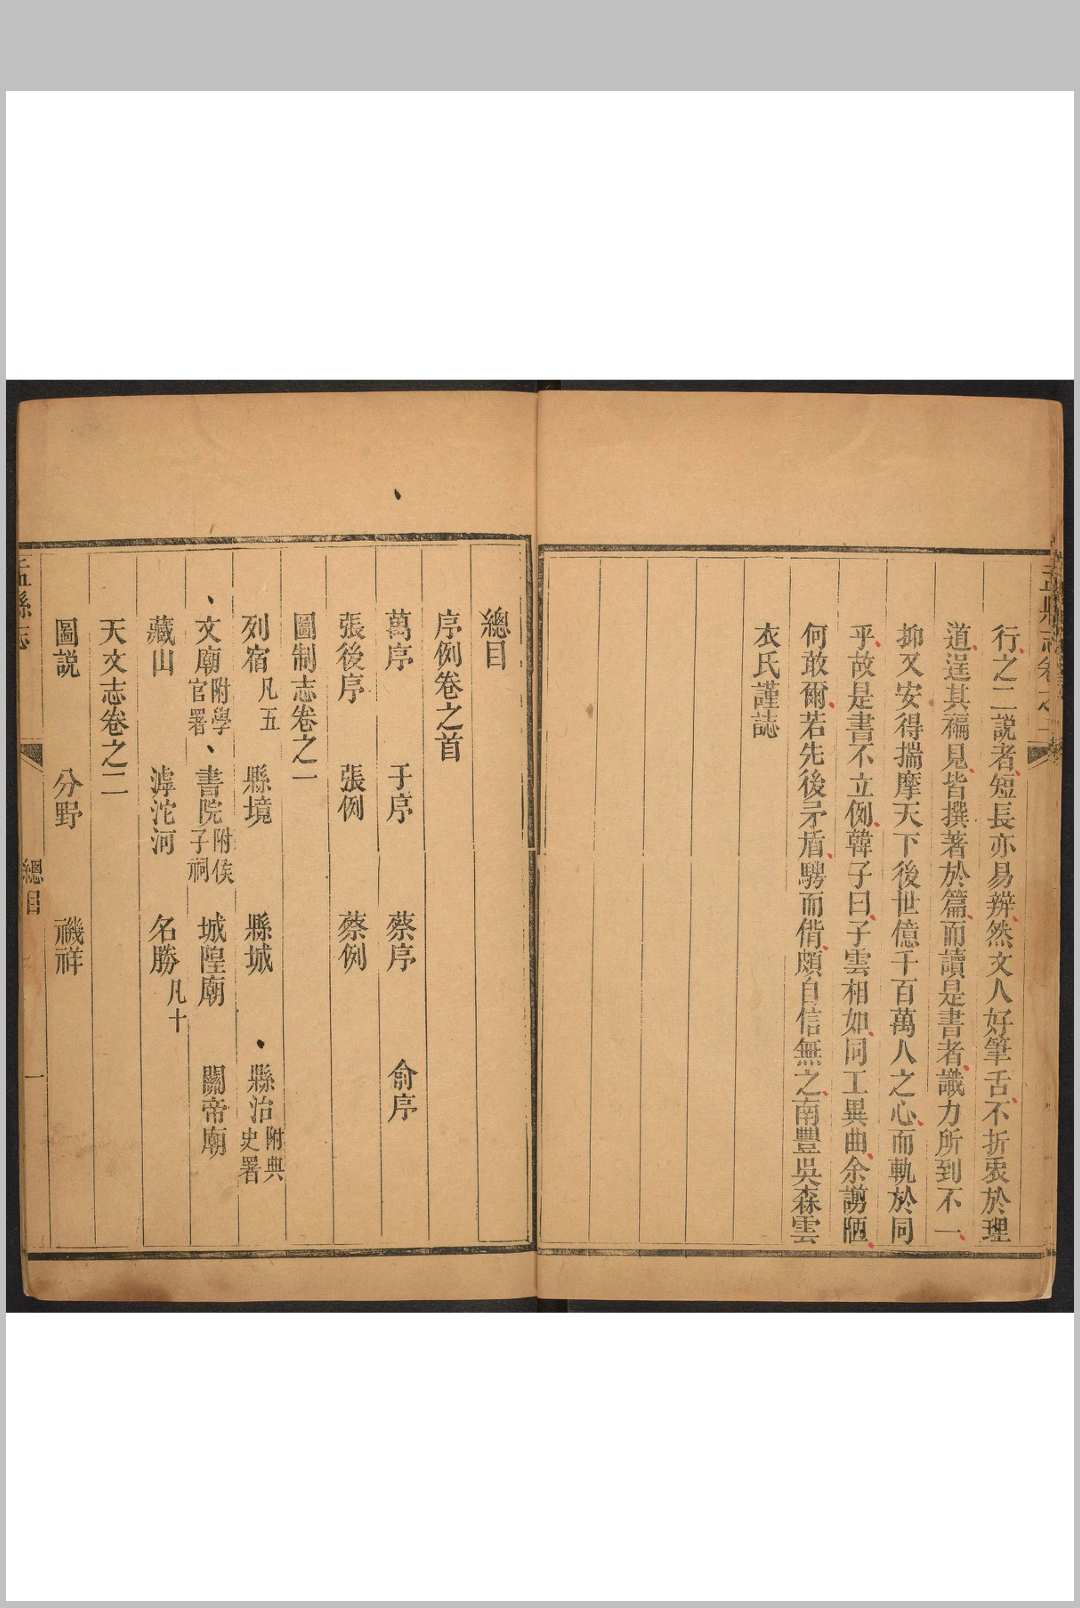 行之二説者短長亦易辨然文人好筆舌不折衷於理
道逞其褊見皆撰著於篇而讀是書者識力所到不一
抑又安得揣摩天下後世億千百萬人之心而軌於同
乎故是書不立例韓子曰子雲相如同工異曲余謭陋
何敢爾若先後矛盾騁而偝頗自信無之南豐吳森雲
衣氏謹誌
總目
序例卷之首
萬序 于序 蔡序 俞序
張後序 張例 蔡例
圖制志卷之一
列宿凡五 縣境 縣城 縣治附典史署
文廟附學官署 書院附侯子祠 城隍廟 關帝廟
藏山 滹沱河 名勝凡十
天文志卷之二
圖説 分野 禨祥
盂縣志 總目 一